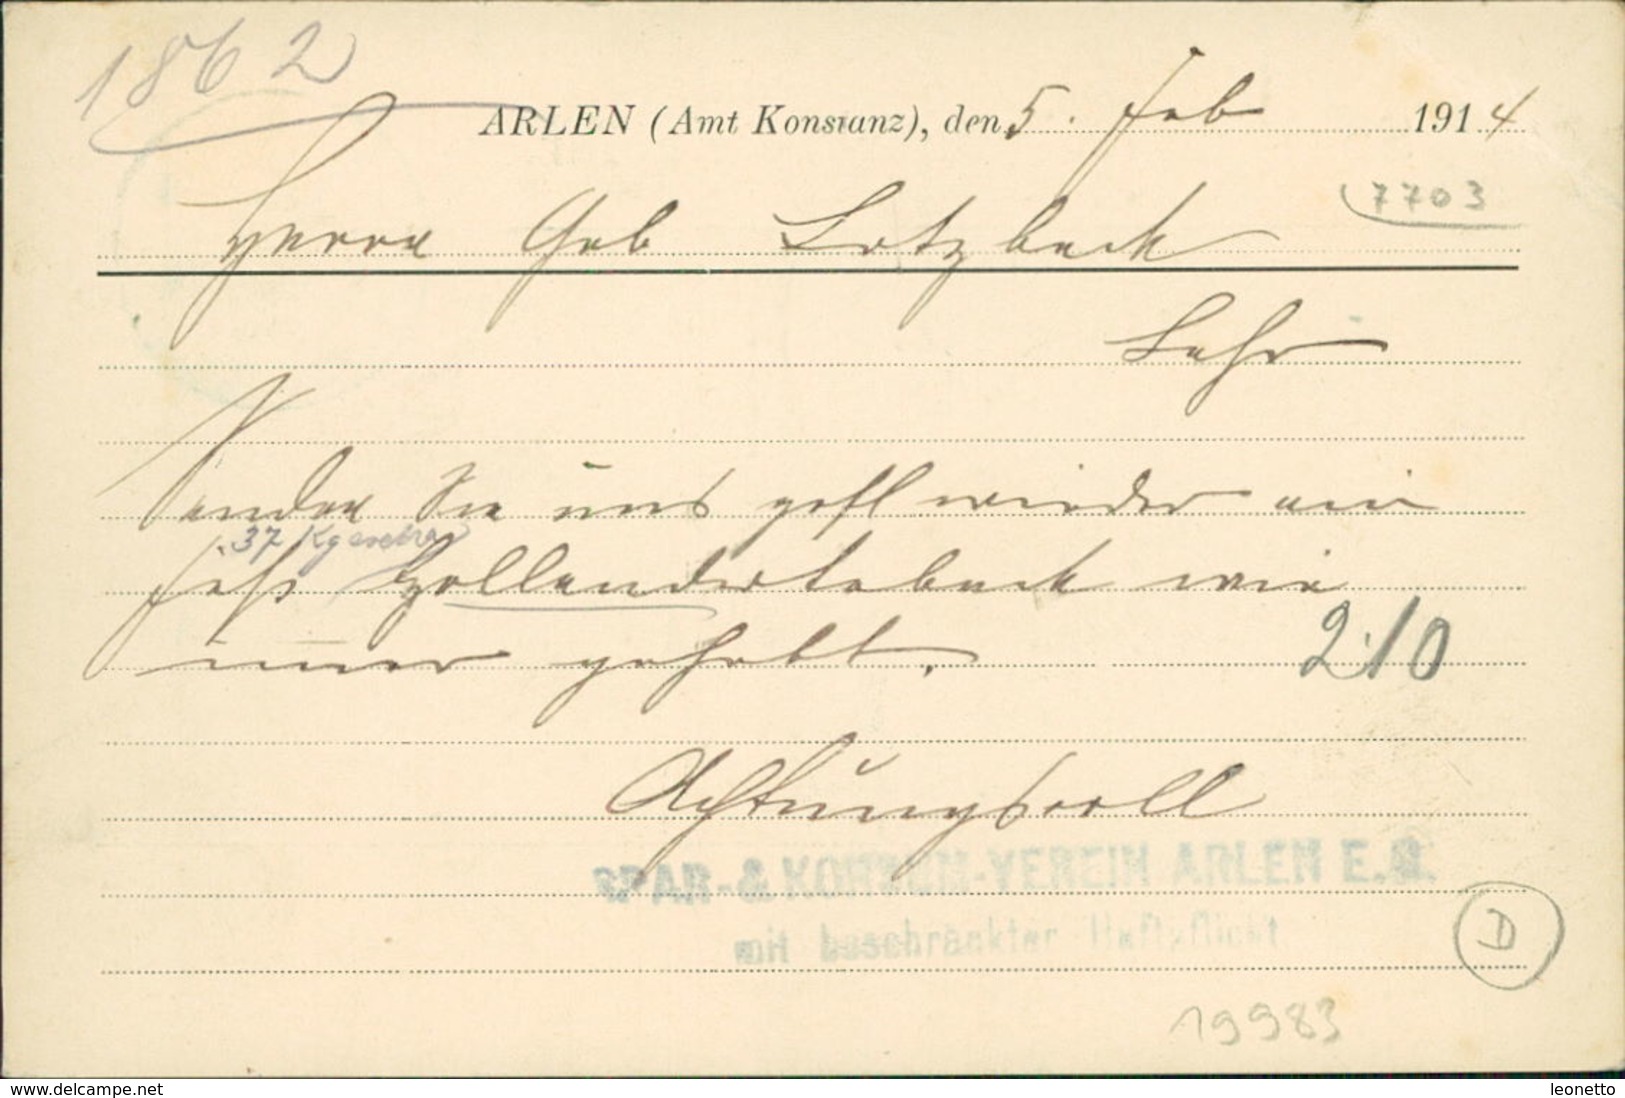 1862
ARLEN (Amt Konstanz), den 5. Feb 1914
7703
Herrn Geb Lotzbeck
Lahr
Senden Sie uns gefl wieder ein
37 Kg extra
Faß Hollandertaback wie
immer gehabt.
210
Achtungsvoll
SPAR-& KONSUM-VEREIN ARLEN E.G.
mit beschränkter Haftpflicht
D
19983
www.delcampe.net
leonetto